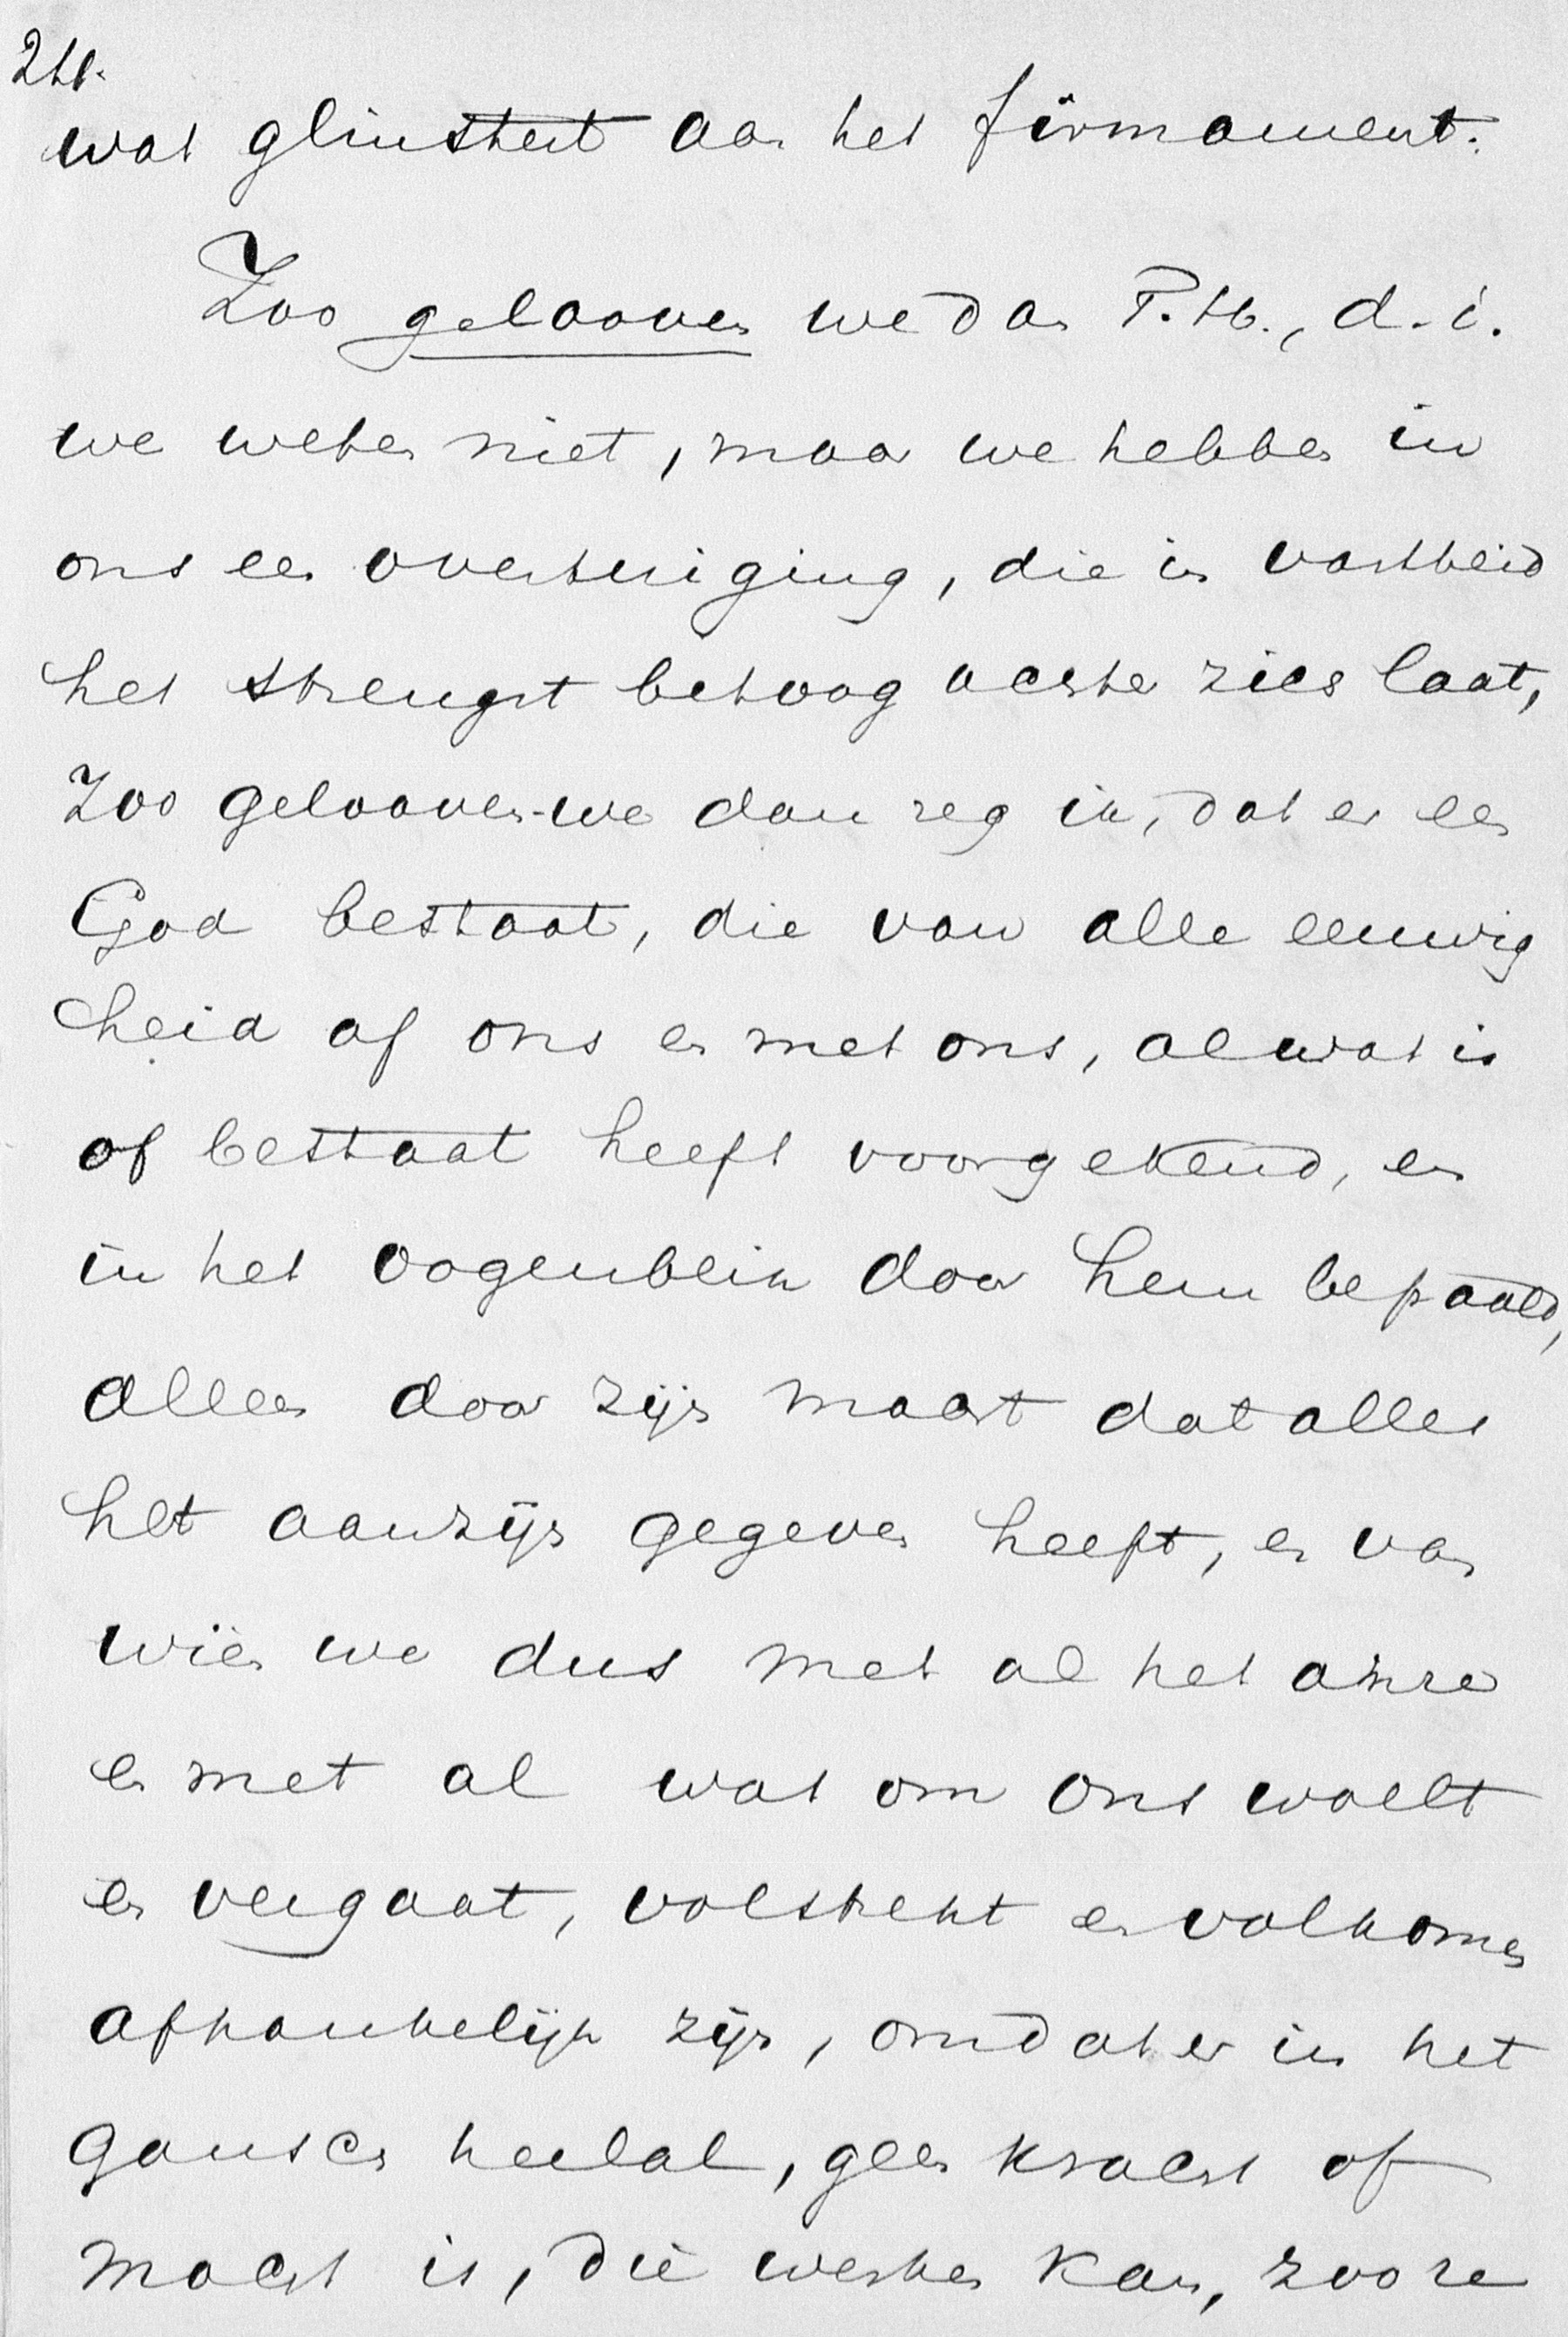 wat glinstert aan het firmament.
Zoo gelooven we dan T. H., d. i.
we weten niet, maar we hebben in
ons een overtuiging, die in vastheid
het strengst betoog achter zich laat,
Zoo gelooven we dan zeg ik, dat er een
God bestaat, die van alle eeuwig
heid af ons en met ons, al wat is
of bestaat heeft voorgekend, en
in het oogenblik door hem bepaald,
alleen door zijn macht dat alles
het aanzijn gegeven heeft, en van
wien we dus met al het onze
en met al wat om ons woelt
en vergaat, volstrekt en volkomen
afhankelijk zijn, omdat er in het
gansch heelal, geen kracht of
macht is, die werken kan, zoo ze